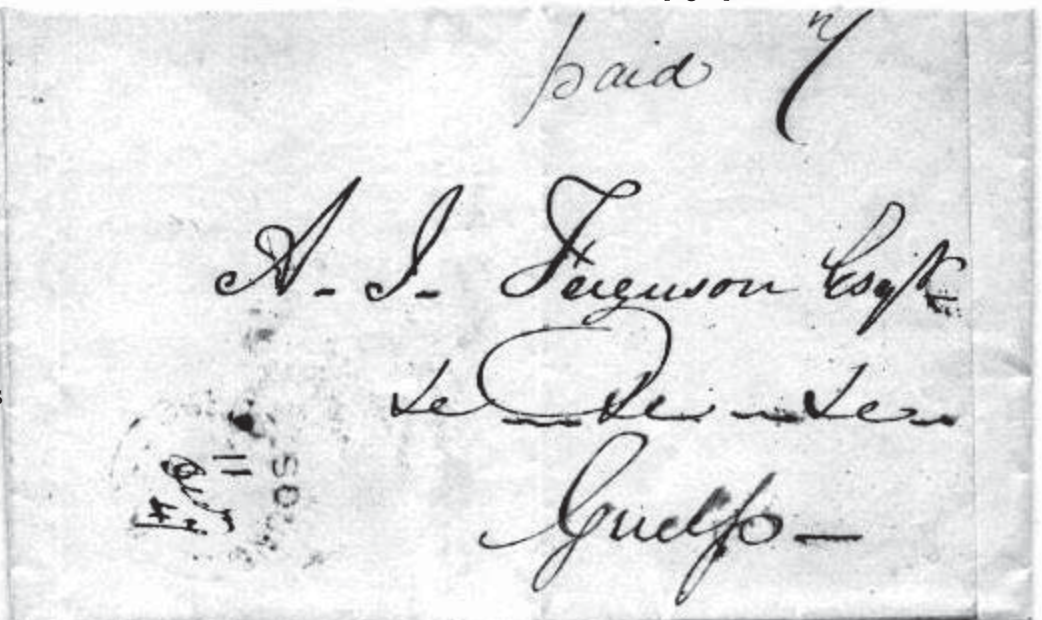 paid 7
A. J. Ferguson Esqr
&c &c &c
Guelph
11